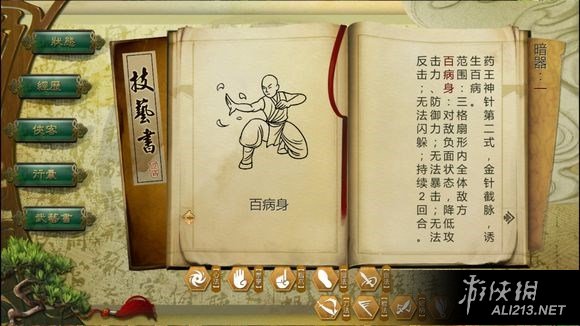 狀態
經歷
俠客
行囊
武藝書
技藝書
百病身
暗器：一
药王神针第二式，金针截脉，诱
生百病。
范围：三格扇形内全体敌方
百病身：对敌负面状态，降低攻
击力、防御力；无法暴击；无法
反击；无法闪躲；持续2回合。
游侠网
ALI213.NET